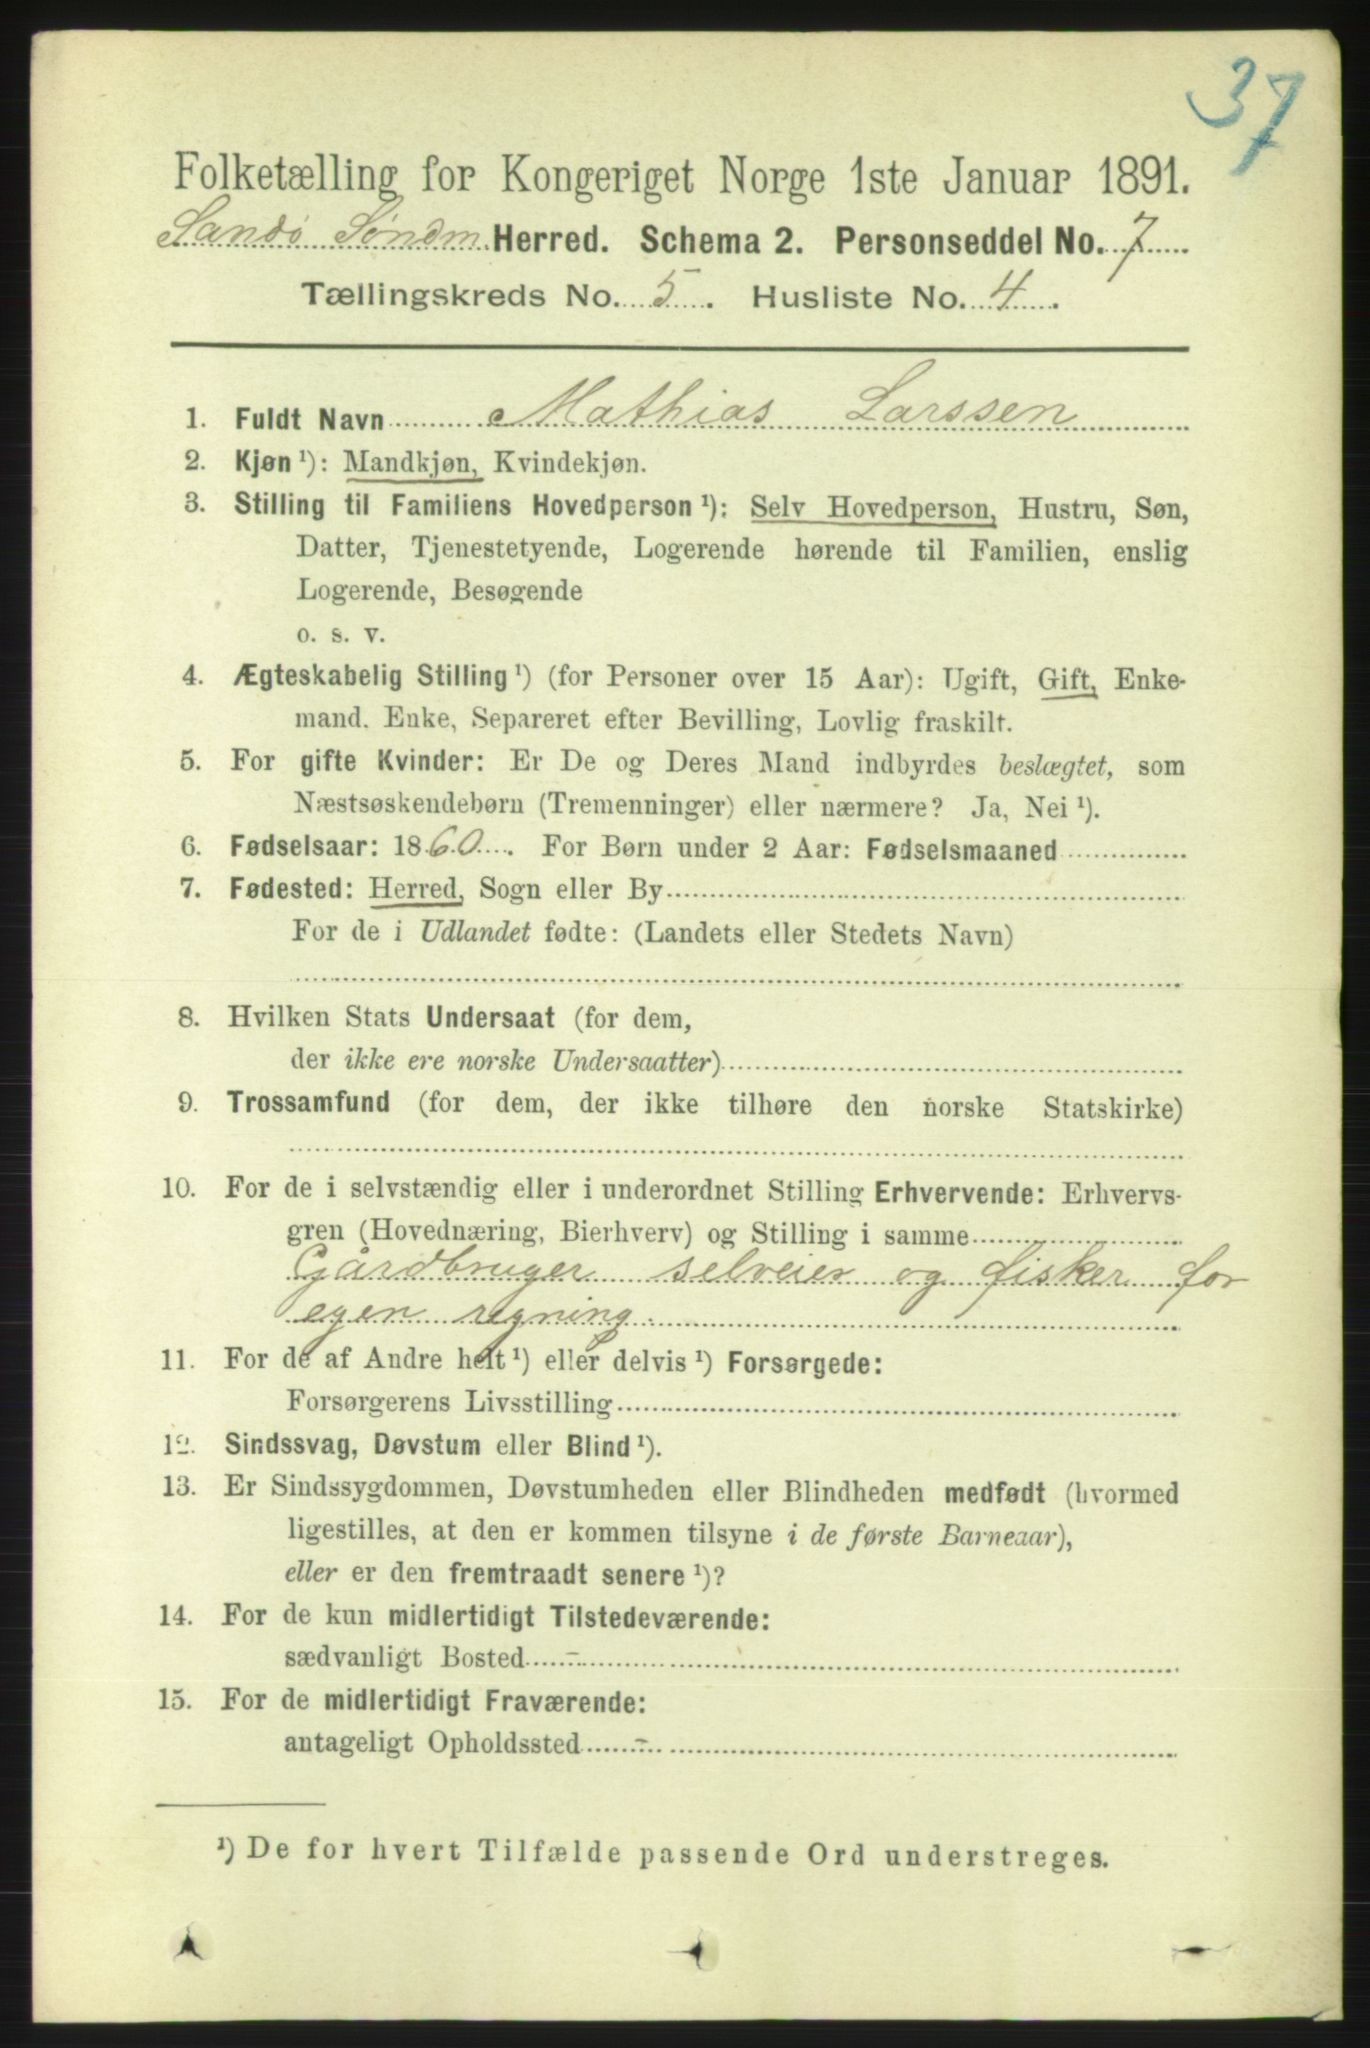 37
Folketælling for Kongeriget Norge 1ste Januar 1891.
Sandø Søndm. Herred. Schema 2. Personseddel No. 7
Tællingskreds No. 5. Husliste No. 4.
1. Fuldt Navn Mathias Larssen
2. Kjøn ¹): Mandkjøn, Kvindekjøn.
3. Stilling til Familiens Hovedperson ¹): Selv Hovedperson, Hustru, Søn,
Datter, Tjenestetyende, Logerende hørende til Familien, enslig
Logerende, Besøgende
o. s. v.
4. Ægteskabelig Stilling ¹) (for Personer over 15 Aar): Ugift, Gift, Enke-
mand. Enke, Separeret efter Bevilling, Lovlig fraskilt.
5. For gifte Kvinder: Er De og Deres Mand indbyrdes beslægtet, som
Næstsøskendebørn (Tremenninger) eller nærmere? Ja, Nei ¹).
6. Fødselsaar: 1860. For Børn under 2 Aar: Fødselsmaaned
7. Fødested: Herred, Sogn eller By
For de i Udlandet fødte: (Landets eller Stedets Navn)
8. Hvilken Stats Undersaat (for dem,
der ikke ere norske Undersaatter)
9. Trossamfund (for dem, der ikke tilhøre den norske Statskirke)
10. For de i selvstændig eller i underordnet Stilling Erhvervende: Erhvervs-
gren (Hovednæring, Bierhverv) og Stilling i samme
Gårdbruger selveier og fisker for
egen regning.
11. For de af Andre helt ¹) eller delvis ¹) Forsørgede:
Forsørgerens Livsstilling
12. Sindssvag, Døvstum eller Blind ¹).
13. Er Sindssygdommen, Døvstumheden eller Blindheden medfødt (hvormed
ligestilles, at den er kommen tilsyne i de første Barneaar),
eller er den fremtraadt senere ¹)?
14. For de kun midlertidigt Tilstedeværende:
sædvanligt Bosted -
15. For de midlertidigt Fraværende:
antageligt Opholdssted -
¹) De for hvert Tilfælde passende Ord understreges.